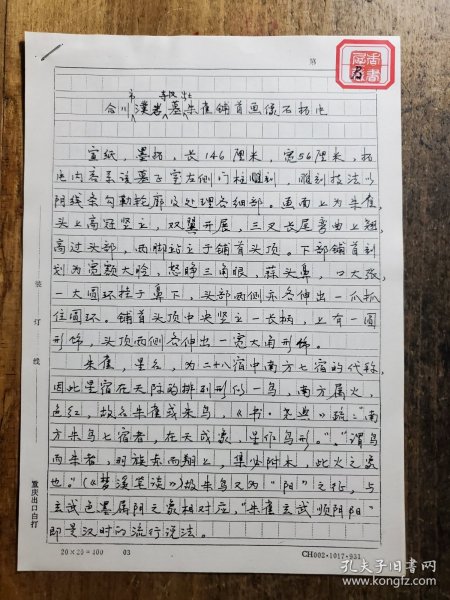 第 页
市 等地出
合川濮岩墓朱雀铺首画像石拓片
宣纸，墨拓，长146厘米，宽56厘米，拓
片内容系该墓子室左侧门柱雕刻，雕刻技法以
阴线条勾勒轮廓及处理各细部。画面上为朱雀，
头上高冠竖立，双翼开展，三叉长尾弯曲上翘，
高过头部，两脚站立于铺首头顶。下部铺首刻
划为宽额大脸，怒睁三角眼，蒜头鼻，口大张，
一大圆环挂于鼻下，头部两侧亦各伸出一爪抓
住圆环。铺首头顶中央竖立一长柄，上有一圆
形饰，头顶两侧各伸出一宽大角形饰。
朱雀，星名，为二十八宿中南方七宿的代称，
因此星宿在天际的排列形似一鸟，南方属火，
色红，故名朱雀或朱鸟，《书·尧典》疏："南
方朱鸟七宿者，在天成象，星作鸟形。""谓鸟
而朱者，羽族赤而翔上，集必附木，此火之象
也。"(《梦溪笔谈》)故朱鸟又为"阳"之征，与
玄武色墨属阴之象相对应，"朱雀玄武顺阴阳"
即是汉时的流行说法。
装订线
重庆出口白打
20×20=400 03
CH002·1017·931
孔夫子旧书网
www.kongfz.com